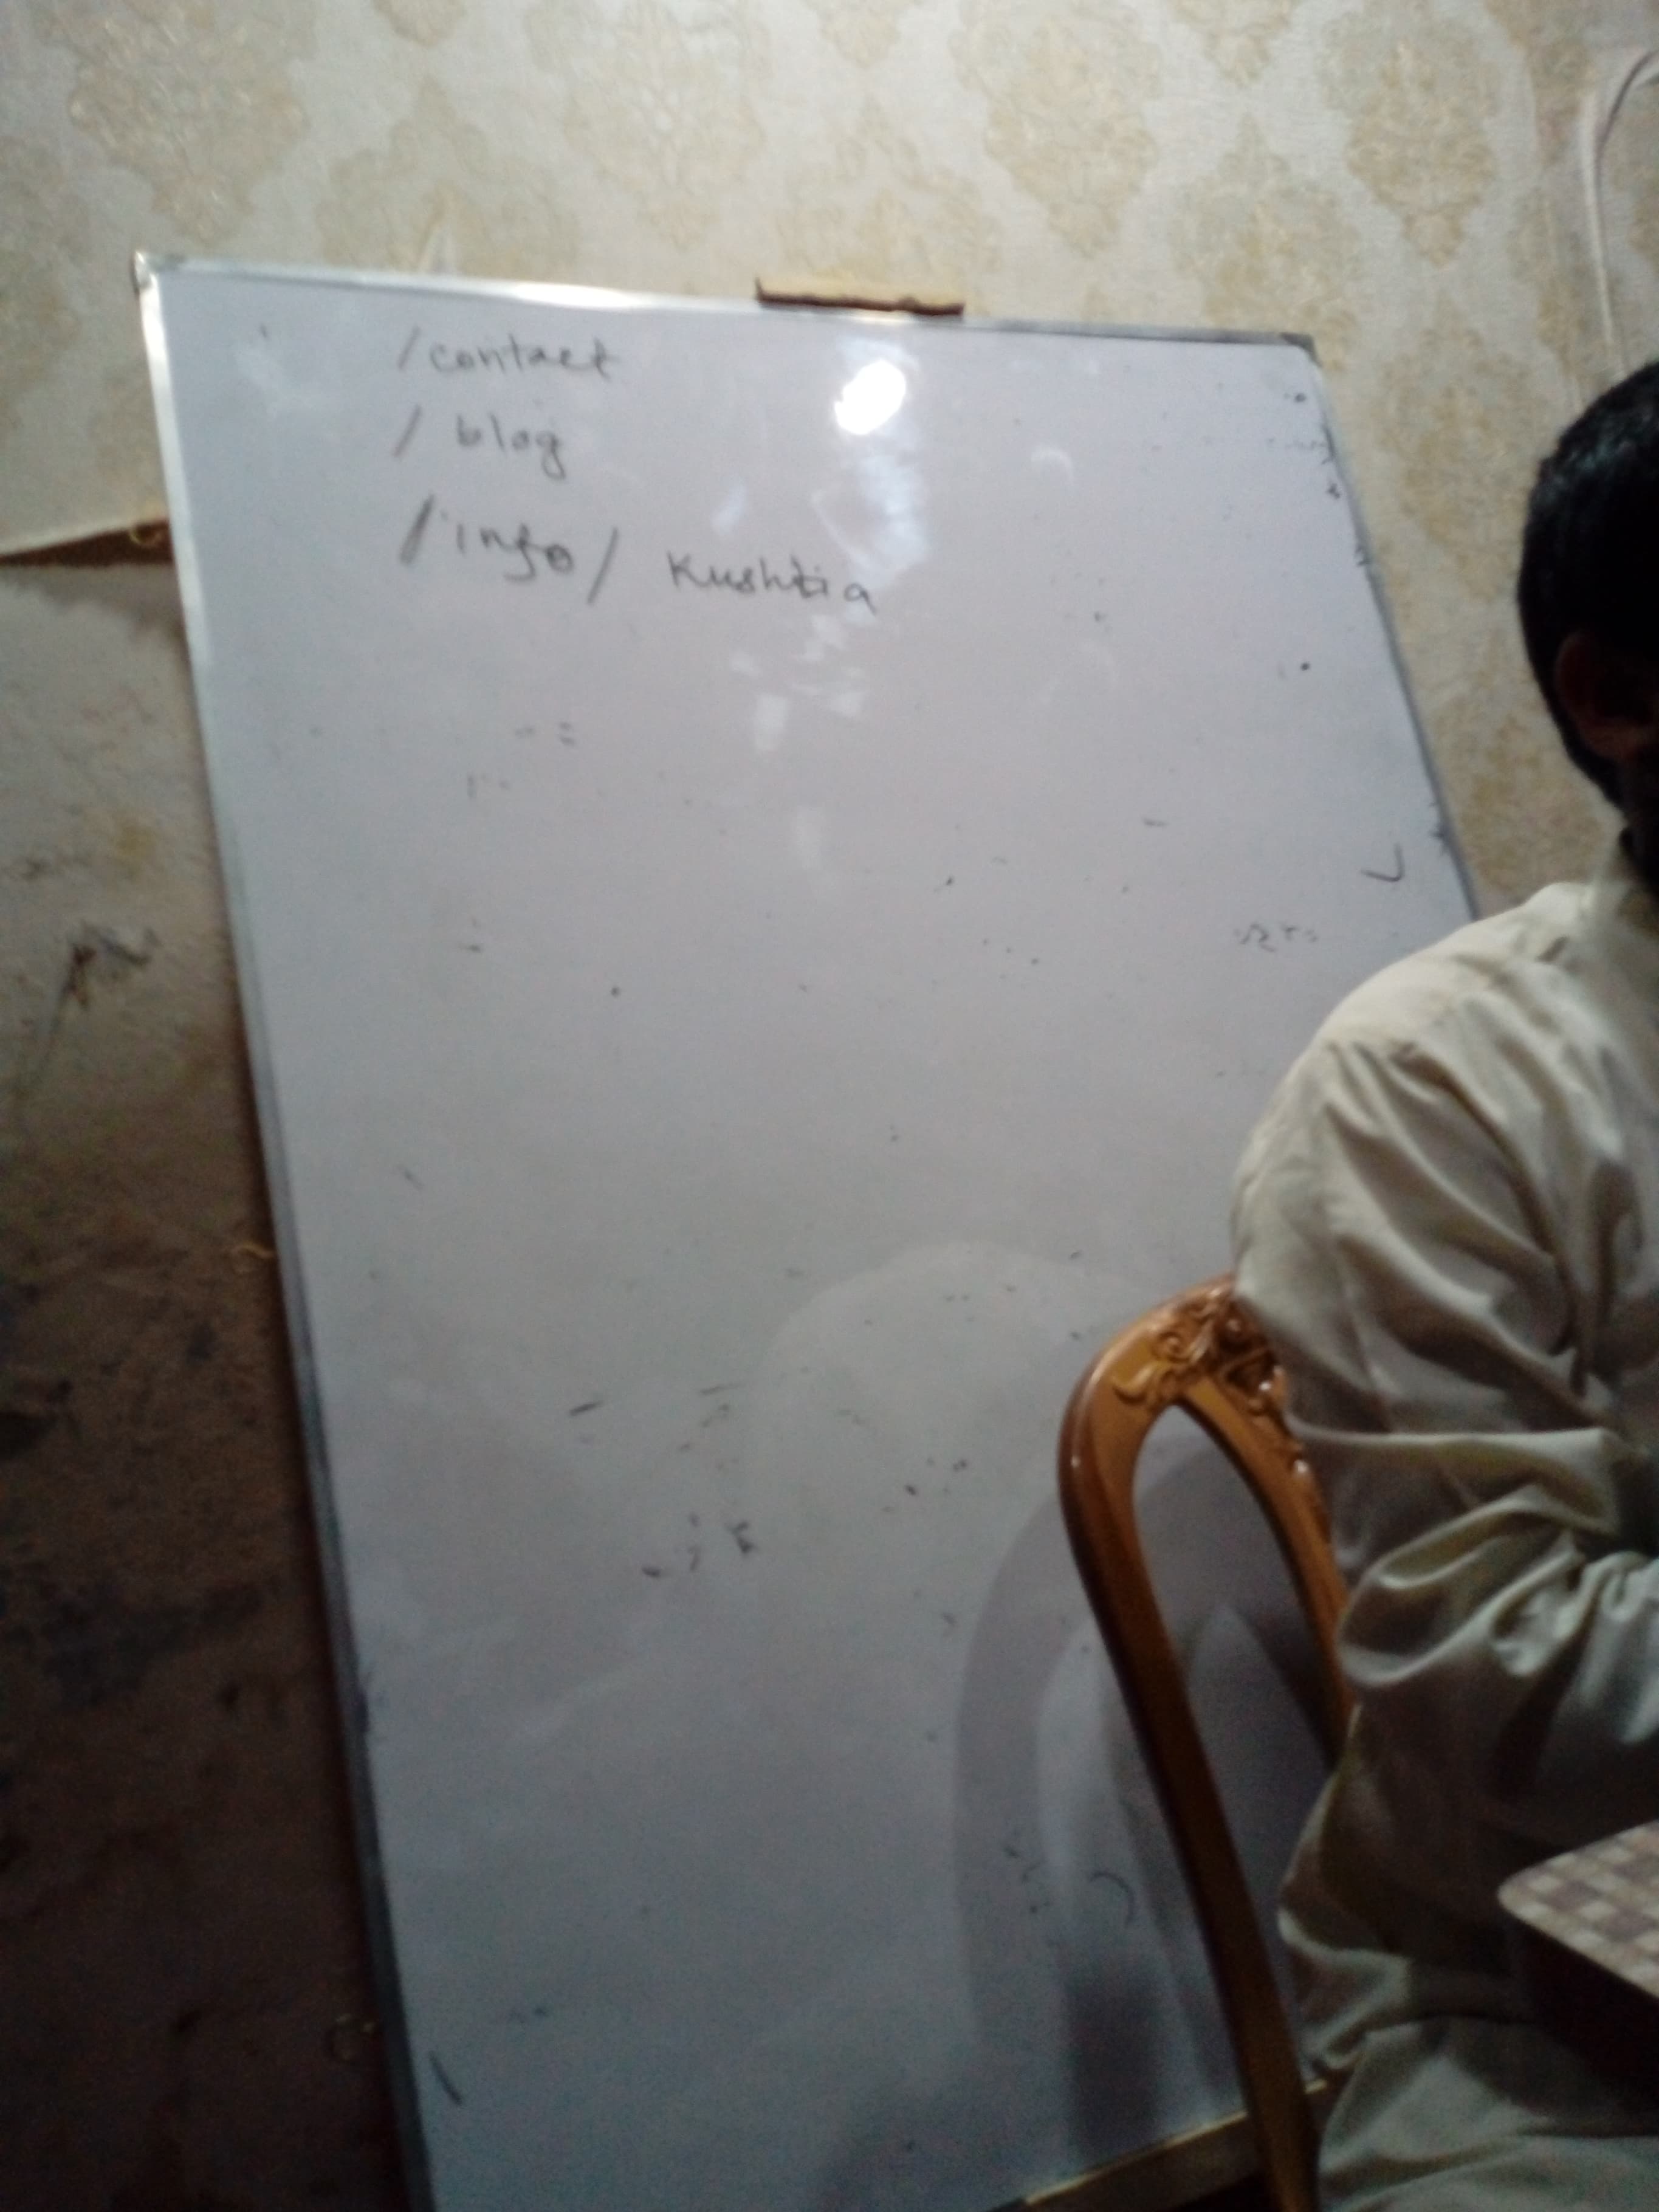 /contact
/ blog
/info/ Kushtia